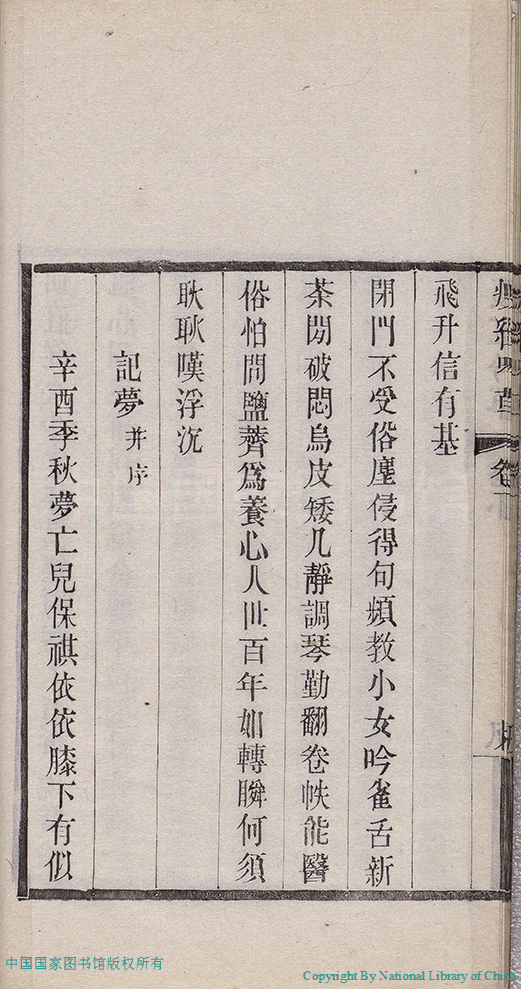 飛升信有基
閉門不受俗塵侵得句頻教小女吟雀舌新
茶閒破悶烏皮矮几靜調琴勤翻卷帙能醫
俗怕問鹽虀爲養心人世百年如轉瞬何須
耿耿嘆浮沉
記夢并序
辛酉季秋夢亡兒保祺依依膝下有似
中国国家图书馆版权所有
Copyright By National Library of China